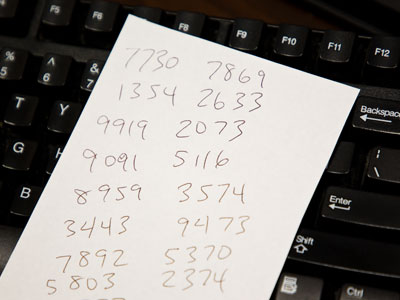 F6
F7
F8
F9
F10
F11
F12
%
5
^
6
&
T
Y
G
H
B
Backspace
Enter
Shift
Ctrl
7730 7869
1354 2633
9919 2073
9091 5116
8959 3574
3443 9473
7892 5370
5803 2374